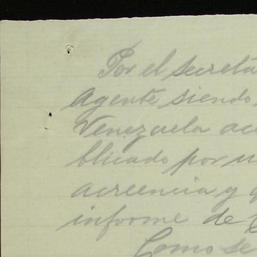 Por el secreta
Agente siendo
Venezuela ac
blicado por u
acreencia y q
informe de
Como se